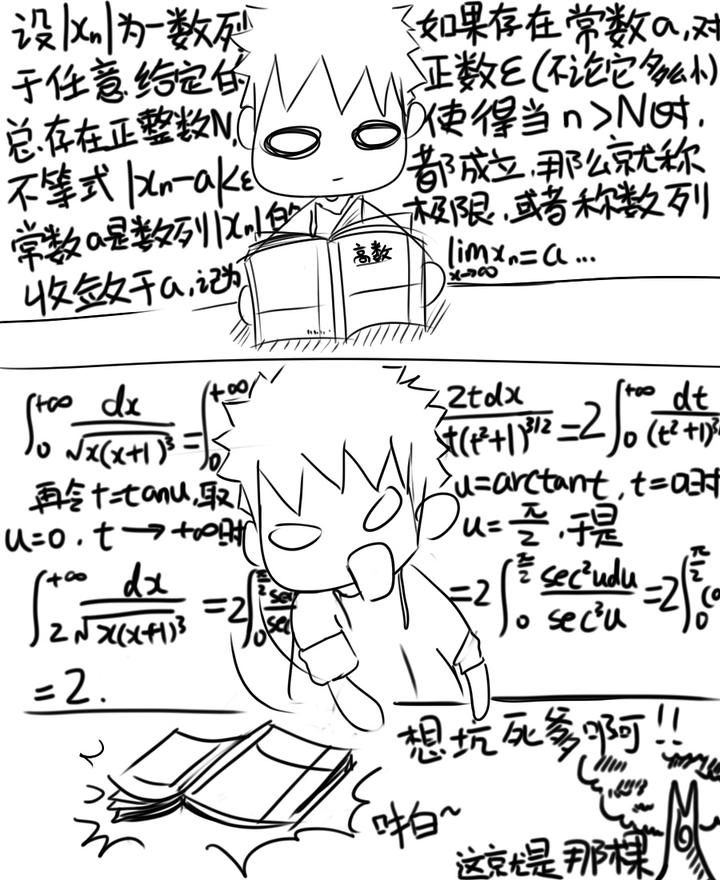 设|xn|为一数列 如果存在常数a,对
于任意给定的 正数ε(不论它多么小)
总存在正整数N, 使得当n>N时,
不等式|xn-a|<ε 都成立,那么就称
常数a是数列|xn|的 极限,或者称数列
收敛于a,记为 lim xn=a...
x→∞
高数
∫0+∞ dx/√x(x+1)³ =∫0+∞ 2tdx/t(t²+1)^3/2 =2∫0+∞ dt/(t²+1)³
再令t=tanu,取 u=arctant,t=0时
u=0.t→+∞时 u=π/2,于是
∫2+∞ dx/√x(x+1)³ =2∫0π/2 sec =2∫0π/2 sec²udu/sec³u =2∫0π/2 co
=2.
想坑死爹啊!!
咔白~
这就是那棵